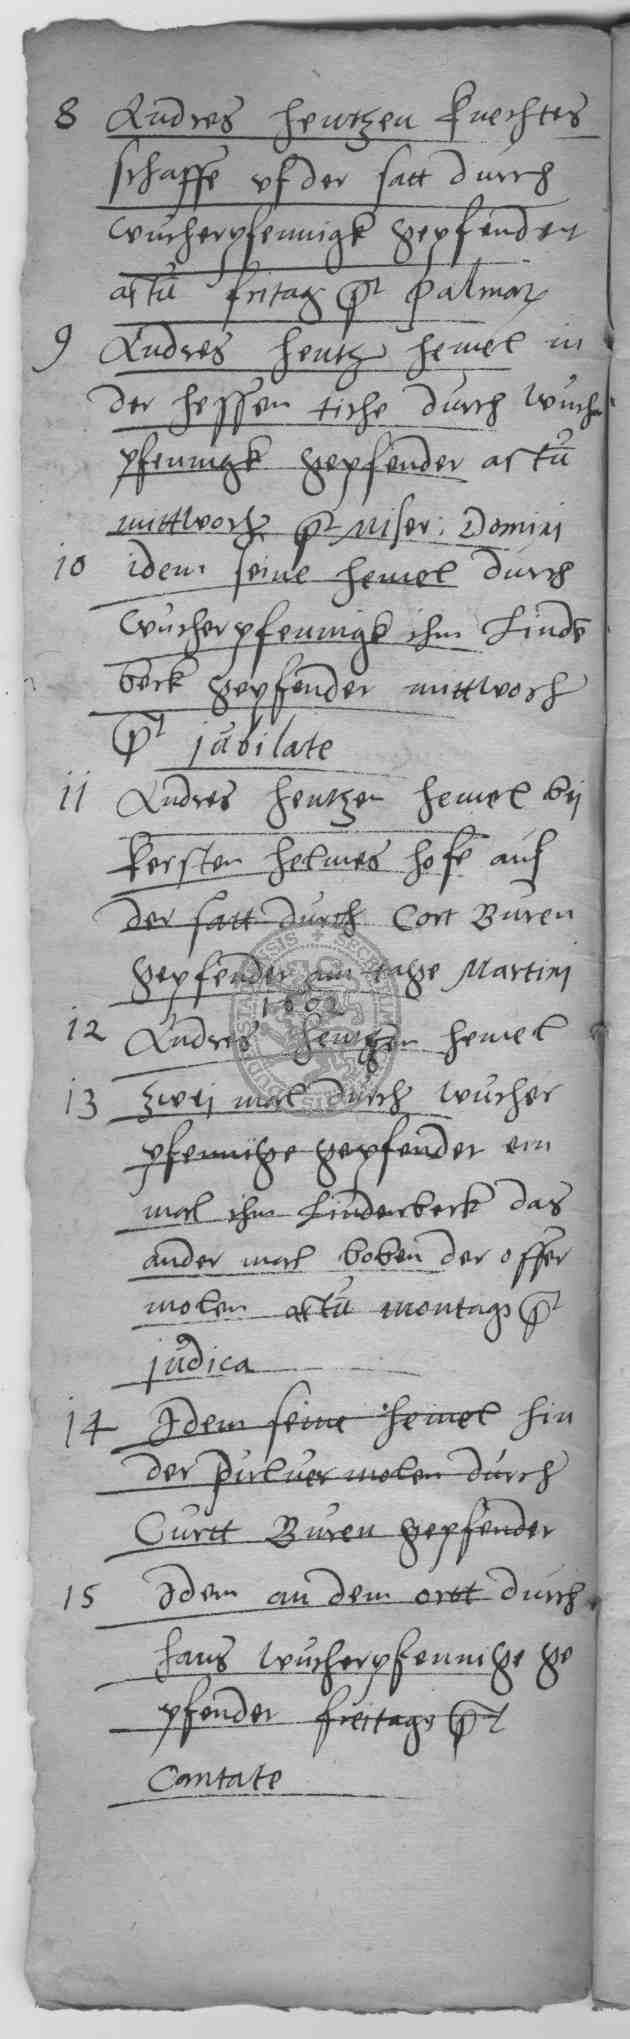 8 Andres hentzen knechtes
schaffe vf der satt durch
wucherpfennigk gepfendet
actu fritag pt palmar
9 Andres hentz hemel in
der hessen tiche durch wucher
pfennigk gepfendet actu
mittwoch pt miser: Domini
10 idem seine hemel durch
wucherpfennigk ihm Linde
beck gepfendet mittwoch
pt jubilate
11 Andres hentzen hemel bij
kersten helmes hofe auf
der satt durch Cort Buren
gepfendet am tage Martini
1602
12 Andres hentzen hemel
13 zwei mal durch wucher
pfennige gepfendet ein
mal ihm Linderbeck das
ander mal boben der offer
molen actu montag pt
judica
14 Idem seine hemel hin
der pulver molen durch
Curtt Buren gepfendet
15 Idem an dem ortt durch
hans wucherpfennige ge
pfendet freitags pt
Cantate